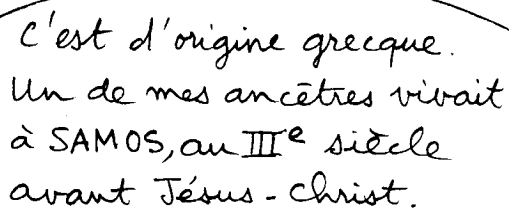 C'est d'origine grecque.
Un de mes ancêtres vivait
à SAMOS, au IIIe siècle
avant Jésus-Christ.